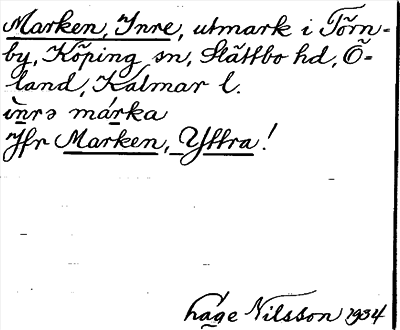 Marken, Inre, utmark i Törn-
by, Köping sn, Slättbo hd, Ö-
land, Kalmar l.
ìnrə márka
Jfr Marken, Yttra!
Håge Nilsson 1934